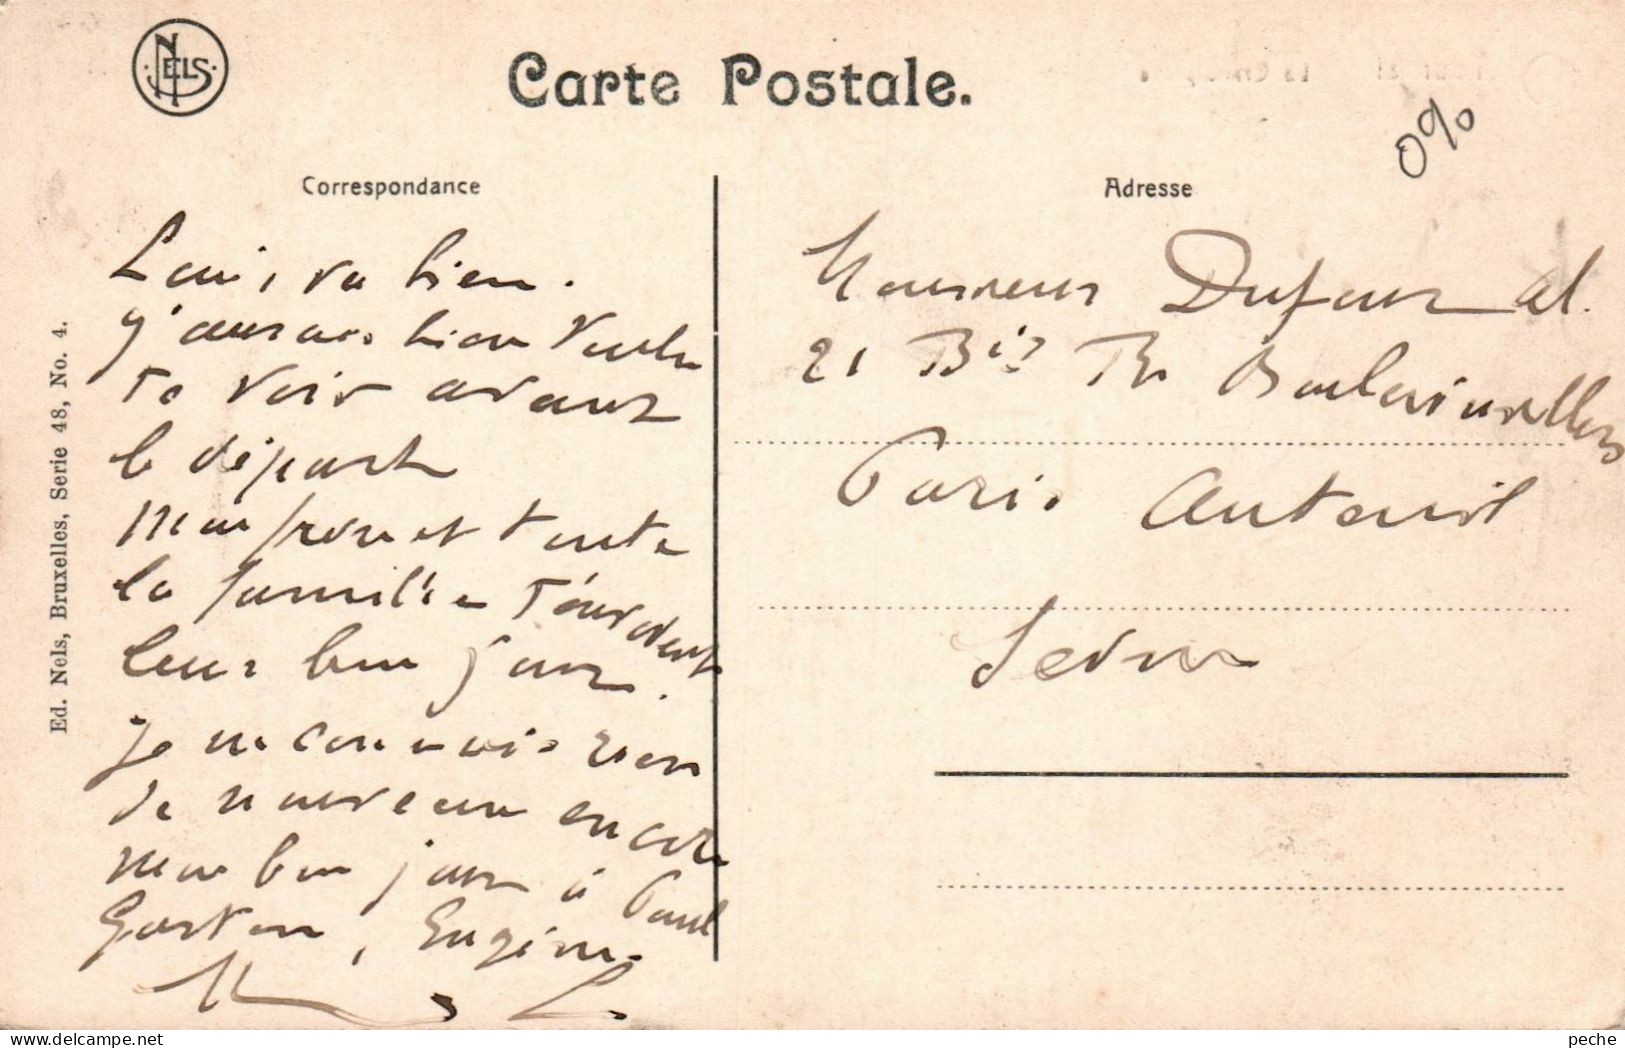 NELS
Carte Postale.
0%
Correspondance
Adresse
Louis va bien.
J'aurais bien voulu
te voir avant
le départ
Mon frère et toute
la famille t'envoient
leur bon jour.
Je ne connais rien
de nouveau encore
mon bon jour à Paul
Gaston, Eugène
Monsieur Dufour Al.
21 Bis Bd Boulainvilliers
Paris Auteuil
Seine
Ed. Nels, Bruxelles, Serie 48, No. 4.
peche